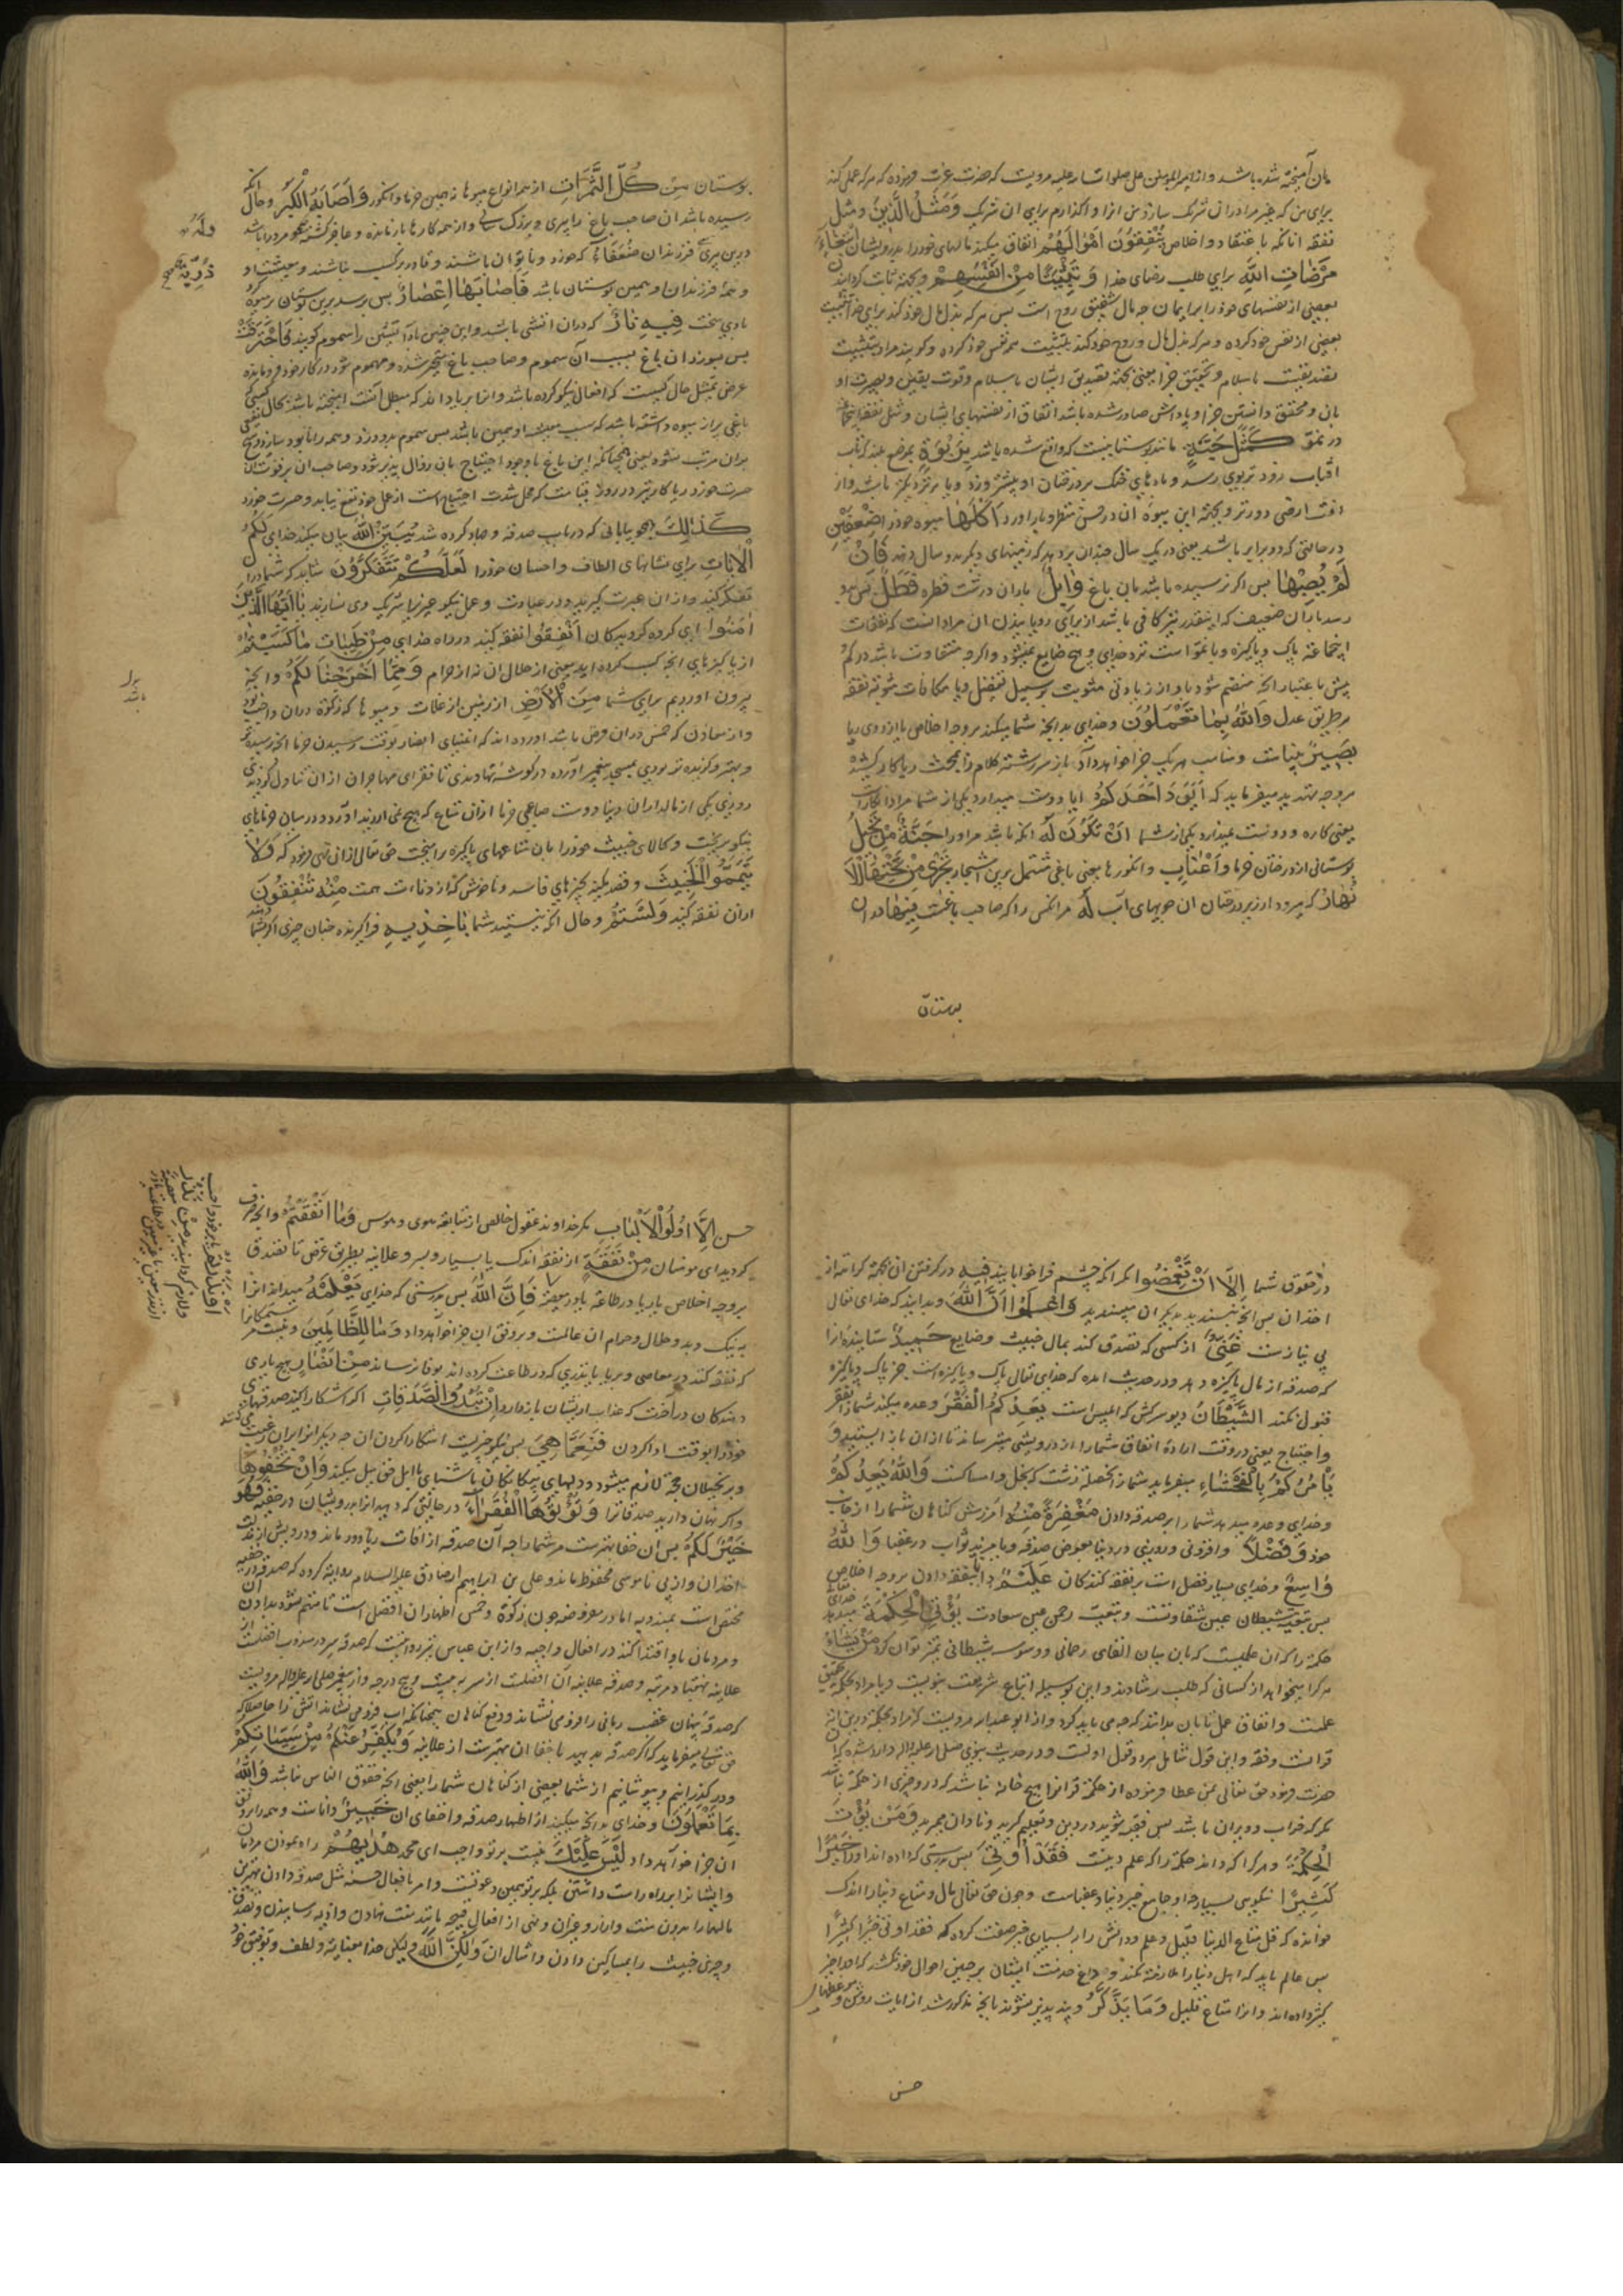 بان آمیخته شده باشد و از امیرالمؤمنین علی صلوات الله علیه مرویست که حضرت عزت فرموده که هر که عملی کند
برای من که غیر مرا در ان شریک سازد من انرا واگذارم برای ان شریک وَمَثَلُ الَّذِينَ و مثل
نفقه انانکه باعتقاد و اخلاص يُنْفِقُونَ اَمْوَالَهُمْ انفاق میکنند مالهای خود را بدرویشان ابْتِغَاءَ
مَرْضَاتِ اللهِ برای طلب رضای خدا وَ تَثْبِيتًا مِنْ اَنْفُسِهِمْ و بجهة ثابت کردانیدن
بعضی از نفسهای خود را بر ایمان چه مال شقیق روح است پس هر که بذل مال خود کند برای خدا تثبیت
بعضی از نفس خود کرده و هر که بذل مال و روح خود کند تثبیت همه نفس خود کرده و کویند مراد بتثبیت
تصدیق باسلام و تحقیق جزا یعنی بجهة تصدیق ایشان باسلام و قوت یقین و بصیرت او
بان و محقق دانستن جزا و پاداش صادر شده باشد انفاق از نفسهای ایشان و مثل نفقه اینجماعت
در نمو كَمَثَلِ جَنَّةٍ مانند بوستانیست که واقع شده باشد بِرَبْوَةٍ بموضع بلند که تاب
افتاب زود تر بوی رسد و بادهای خنک بر درختان او بیشتر وزد
افت ارضی دورتر و بجهة این میوه ان در حسن منظر و بار اورد اُكُلَهَا میوه خود را ضِعْفَيْنِ
در حالتی که دو برابر باشد یعنی در یک سال چندان بر دهد که زمینهای دیکر بدو سال دهد فَاِنْ
لَمْ يُصِبْهَا پس اکر نرسیده باشد بان باغ وَابِلٌ باران درشت قطره فَطَلٌّ پس بدو
رسد باران ضعیف که اینقدر نیز کافی باشد از برای رویانیدن ان مراد انست که نفقات
اینجماعة پاک و پاکیزه و با نمو است نزد خدای و هیچ ضایع نمیشود و اکرچه متفاوت باشد در کم و
بیش باعتبار انچه منضم شود باو از زیادتی مثوبت بر سبیل تفضل و یا مکافات مثوبة نفقه
بر طریق عدل وَاللهُ بِمَا تَعْمَلُونَ و خدای بدانچه شما میکنید بر وجه اخلاص یا از روی ریا
بَصِيرٌ بیناست و مناسب هر یک جزا خواهد داد باز سر رشته کلام را ببحث ریا کار کشیده
بر وجه تهدید میفرماید که اَيَوَدُّ اَحَدُكُمْ ایا دوست میدارد یکی از شما مراد انکار است
یعنی کاره و دوست نمیدارد یکی از شما اَنْ تَكُونَ لَهُ انکه باشد مر او را جَنَّةٌ مِنْ نَخِيلٍ
بوستانی از درختان خرما وَاَعْنَابٍ و انکورها یعنی باغی مشتمل برین اشجار تَجْرِي مِنْ تَحْتِهَا الْاَ
نْهَارُ که میرود از زیر درختان ان جویهای آب لَهُ مر انکس را که صاحب باغست فِيهَا در ان
بوستان
بوستان مِنْ كُلِّ الثَّمَرَاتِ از همه انواع میوها نه همین خرما و انکور وَاَصَابَهُ الْكِبَرُ و حال انکه
رسیده باشد ان صاحب باغ را پیری و بزرک سالی و از همه کارها بازمانده و عاجز کشته وَلَهُ و مر او را باشد
درین پیری ذُرِّيَّةٌ فرزندان ضُعَفَاءُ که خورد و ناتوان باشند و قادر بر کسب نباشند و معیشت او
و همه فرزندان او همین بوستان باشد فَاَصَابَهَا اِعْصَارٌ پس برسد برین بوستان برسوخته
بادی سخت فِيهِ نَارٌ که در ان اتشی باشد و این چنین باد آتشین را سموم کویند فَاحْتَرَقَتْ
پس بسوزد ان باغ بسبب آن سموم و صاحب باغ متحیر شده و مهموم شود در کار خود فرومانده
غرض تمثیل حال کیست که افعال نیکو کرده باشد و انرا بریا و اذا که مبطل انست امیخته باشد بحال کسی که
باغی پر از میوه داشته باشد که سبب معیشت او همین باشد پس سموم بدو وزد و همه را نابود سازد و هیچ نفعی
بران مرتب نشود یعنی همچنانکه این باغ با وجود احتیاج بان زوال پذیر شود و صاحب ان بر فوت ان
حسرت خورد ریا کار نیز در روز قیامت که محل شدت احتیاج است از عمل خود نفع نیابد و حسرت خورد
كَذٰلِكَ همچو بیانی که در باب صدقه و جهاد کرده شد يُبَيِّنُ اللهُ بیان میکند خدای لَكُمُ
الْاٰيَاتِ برای شما نشانهای الطاف و احسان خود را لَعَلَّكُمْ تَتَفَكَّرُونَ شاید که شما در ان
تفکر کنید و از ان عبرت کیرید و در عبادت و عمل نیکو غیر را شریک وی نسازید يَا اَيُّهَا الَّذِينَ
اٰمَنُوا ای کروه کرویدکان اَنْفِقُوا نفقه کنید در راه خدای مِنْ طَيِّبَاتِ مَا كَسَبْتُمْ
از پاکیزهای انچه کسب کرده اید یعنی از حلال ان نه از حرام وَمِمَّا اَخْرَجْنَا لَكُمْ و انچه
بیرون اوردیم برای شما مِنَ الْاَرْضِ از زمین از غلات و میوها که زکوة دران واجب بود
و از معادن که خمس دران فرض باشد اورده اند که اغنیای انصار بوقت رسیدن خرما انچه رسیده تر
و بهتر و کزیده تر بودی بمسجد پیغمبر اورده در کوشه نهادندی تا فقرای مهاجران ازان تناول کردندی
روزی یکی از مالداران دنیا دوست صاعی خرما ازان متاع که هیچ نمی ارزید آورد و در میان خرمای
نیکو بریخت و کالای خبیث خود را بان متاعهای پاکیزه برامیخت حق تعالی ازان نهی فرمود که وَلَا
تَيَمَّمُوا الْخَبِيثَ و قصد مکنید چیزهای فاسد و ناخوش که از دناءت همت مِنْهُ تُنْفِقُونَ
ازان نفقه کنید وَلَسْتُمْ و حال انکه نیستید شما بِاٰخِذِيهِ فراکیرنده چنان چیزی اکر بشما دهند
در حقوق شما اِلَّا اَنْ تُغْمِضُوا مکر انکه چشم فراخوابانید فِيهِ در کرفتن ان بجهة کراهة از
اخذ ان پس انچه نپسندید بدیکران مپسندید وَاعْلَمُوا اَنَّ اللهَ و بدانید که خدای تعالی
بی نیازست غَنِيٌّ از کسی که تصدق کند بمال خبیث و ضایع حَمِيدٌ ستاینده انرا
که صدقه از مال پاکیزه دهد و در حدیث امده که خدای تعالی پاک و پاکیزه است جز پاک و پاکیزه
قبول نکند الشَّيْطَانُ دیو سرکش که ابلیس است يَعِدُكُمُ الْفَقْرَ وعده میکند شما را بفقر
و احتیاج یعنی در وقت اراده انفاق شما را از درویشی میترساند تا از ان باز ایستید وَ
يَاْمُرُكُمْ بِالْفَحْشَاءِ میفرماید شما را بخصلة زشت که بخل و امساکست وَاللهُ يَعِدُكُمْ
و خدای وعده میدهد شما را بر صدقه دادن مَغْفِرَةً مِنْهُ آمرزش کناهان شما را از جانب
خود وَفَضْلًا و افزونی و روزی در دنیا بعوض صدقه و یا مزید ثواب در عقبا وَاللهُ
وَاسِعٌ و خدای بسیار فضل است بر نفقه کنندکان عَلِيمٌ دانا بنفقه دادن بر وجه اخلاص
پس تبعیة شیطان عین شقاوتست و تبعیت رحمن عین سعادت يُؤْتِي الْحِكْمَةَ میدهد خدای
حکمة را که ان علمیست که بان میان القای رحمانی و وسوسه شیطانی تمیز توان کرد مَنْ يَشَاءُ
هر کرا میخواهد از کسانی که طلب رشادند و این بوسیله اتباع شریعت نبویست و یا مراد بحکمة تحقیق
علمست و اتقان عمل تا بان بدانند که چه می باید کرد و از ابو عبدالله مرویست که مراد بحکمة درین ایه
قرانست و فقه و این قول شامل هر دو قول اولست و در حدیث نبوی صلی الله علیه واله وارد شده که
حضرت فرمود حق تعالی بمن عطا فرموده از حکمة قرانرا هیچ خانه نباشد که درو چیزی از حکمة نباشد
مکر که خراب و ویران باشد پس فقیه شوید در دین و تعلیم کیرید و نادان ممیرید وَمَنْ يُؤْتَ
الْحِكْمَةَ و هر کرا که داند حکمة را که علم دینست فَقَدْ اُوتِيَ پس بدرستی که داده اند او را خَيْرًا
كَثِيرًا نیکویی بسیار چه او جامع خیر دنیا و عقباست و چون حق تعالی مال و متاع دنیا را اندک
خوانده که قل متاع الدنیا قلیل و علم و دانش را بر بسیاری خیر صفت کرده که فقد اوتی خیرا کثیرا
پس عالم باید که اهل دنیا را ملازمة نکند و داغ خدمت ایشان بر جبین احوال خود نکشد که او را خیر
کثیر داده اند و انرا متاع قلیل وَمَا يَذَّكَّرُ و پند پذیر نشوند بانچه مذکور شد از ایات روشن و موعظهای
حسن
حسن اِلَّا اُولُوا الْاَلْبَابِ مکر خداوند عقول خالص از متابعة هوی و هوس وَمَا اَنْفَقْتُمْ و انچه صرف
کردید ای مومنان مِنْ نَفَقَةٍ از نفقه اندک یا بسیار و بسر و علانیه بطریق فرض یا تصدق
بر وجه اخلاص یا ریا در طاعة یا در معصیة فَاِنَّ اللهَ پس بدرستی که خدای يَعْلَمُهُ میداند انرا
به نیک و بد و حلال و حرام ان عالمست و بر وفق ان جزا خواهد داد وَمَا لِلظَّالِمِينَ و نیست مر ستمکارانرا
که نفقه کنند در معاصی و بریا یا نذری که در طاعت کرده اند بوفا نرسانند مِنْ اَنْصَارٍ هیچ یاری
دهندکان در آخرت که عذاب از ایشان بازدارد اِنْ تُبْدُوا الصَّدَقَاتِ اکر اشکارا کنید صدقهای
خود را بوقت ادا کردن فَنِعِمَّا هِيَ پس نیکو چیزیست اشکارا کردن ان چه دیکرانرا بران رغبت می افتد
و بر بخیلان حجة لازم میشود و دلهای بیکانکان باشنای با اهل حق میل میکند وَاِنْ تُخْفُوهَا
و اکر نهان دارید صدقاترا وَتُؤْتُوهَا الْفُقَرَاءَ در حالتی که دهید انرا بدرویشان در خفیه فَهُوَ
خَيْرٌ لَكُمْ پس ان خفا بهترست مر شما را چه آن صدقه از افات ریا دور ماند و درویش از مذلت
اخذ ان و از بی ناموسی محفوظ ماند و علی بن ابراهیم از صادق علیه السلام روایة کرده که صدقه خفیه
مختص است بمندوبه اما در مفروضه چون زکوة و خمس اظهار ان افضل است تا متهم نشود بدادن ان
و مردمان باو اقتدا کنند در افعال واجبه و از ابن عباس نیز روایتست که صدقه سر در مندوب افضلست از
علانیه بهفتاد مرتبه و صدقه علانیه ان افضلست از سر به بیست و پنج درجه و از پیغمبر صلی الله علیه واله مرویست
که صدقه پنهان غضب ربانی را فرو می نشاند و دفع کناهان میکند همچنانکه اب فرو می نشاند اتش را حاصل که
حق تعالی میفرماید که اکر صدقه بدهید با خفا ان بهترست از علانیه وَيُكَفِّرُ عَنْكُمْ مِنْ سَيِّئَاتِكُمْ
و در کذرانیم و بپوشانیم از شما بعضی از کناهان شما را یعنی انچه حقوق الناس نباشد وَاللهُ
بِمَا تَعْمَلُونَ و خدای بدانچه میکنید از اظهار صدقه و اخفای ان خَبِيرٌ داناست و همه را بر وفق
ان جزا خواهد داد لَيْسَ عَلَيْكَ نیست بر تو واجب ای محمد هُدٰيهُمْ راه نمودن مردمان
و ایشانرا بر راه راست داشتن بلکه بر تو همین دعوتست و امر بافعال حسنه مثل صدقه دادن بهترین
مالها را بدون منت و ازار و جز ان و نهی از افعال قبیحه مانند منت نهادن و اذیه رسانیدن و تصدق
و چیزی خبیث را بمساکین دادن و امثال ان وَلٰكِنَّ اللهَ و لیکن خدا بعنایة و لطف و توفیق خود